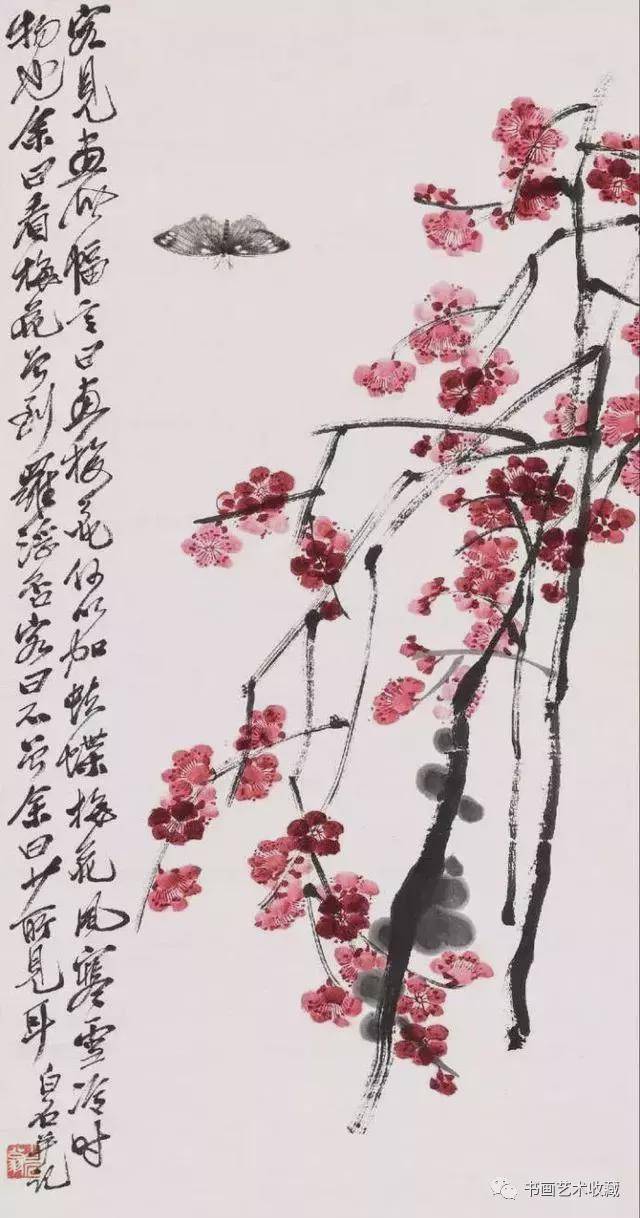 客見畫此幅言曰畫梅花何以加蛺蝶梅花風寒雪冷時
物也余曰看梅花曾到羅浮否客曰不曾余曰少所見耳
白石并記
书画艺术收藏